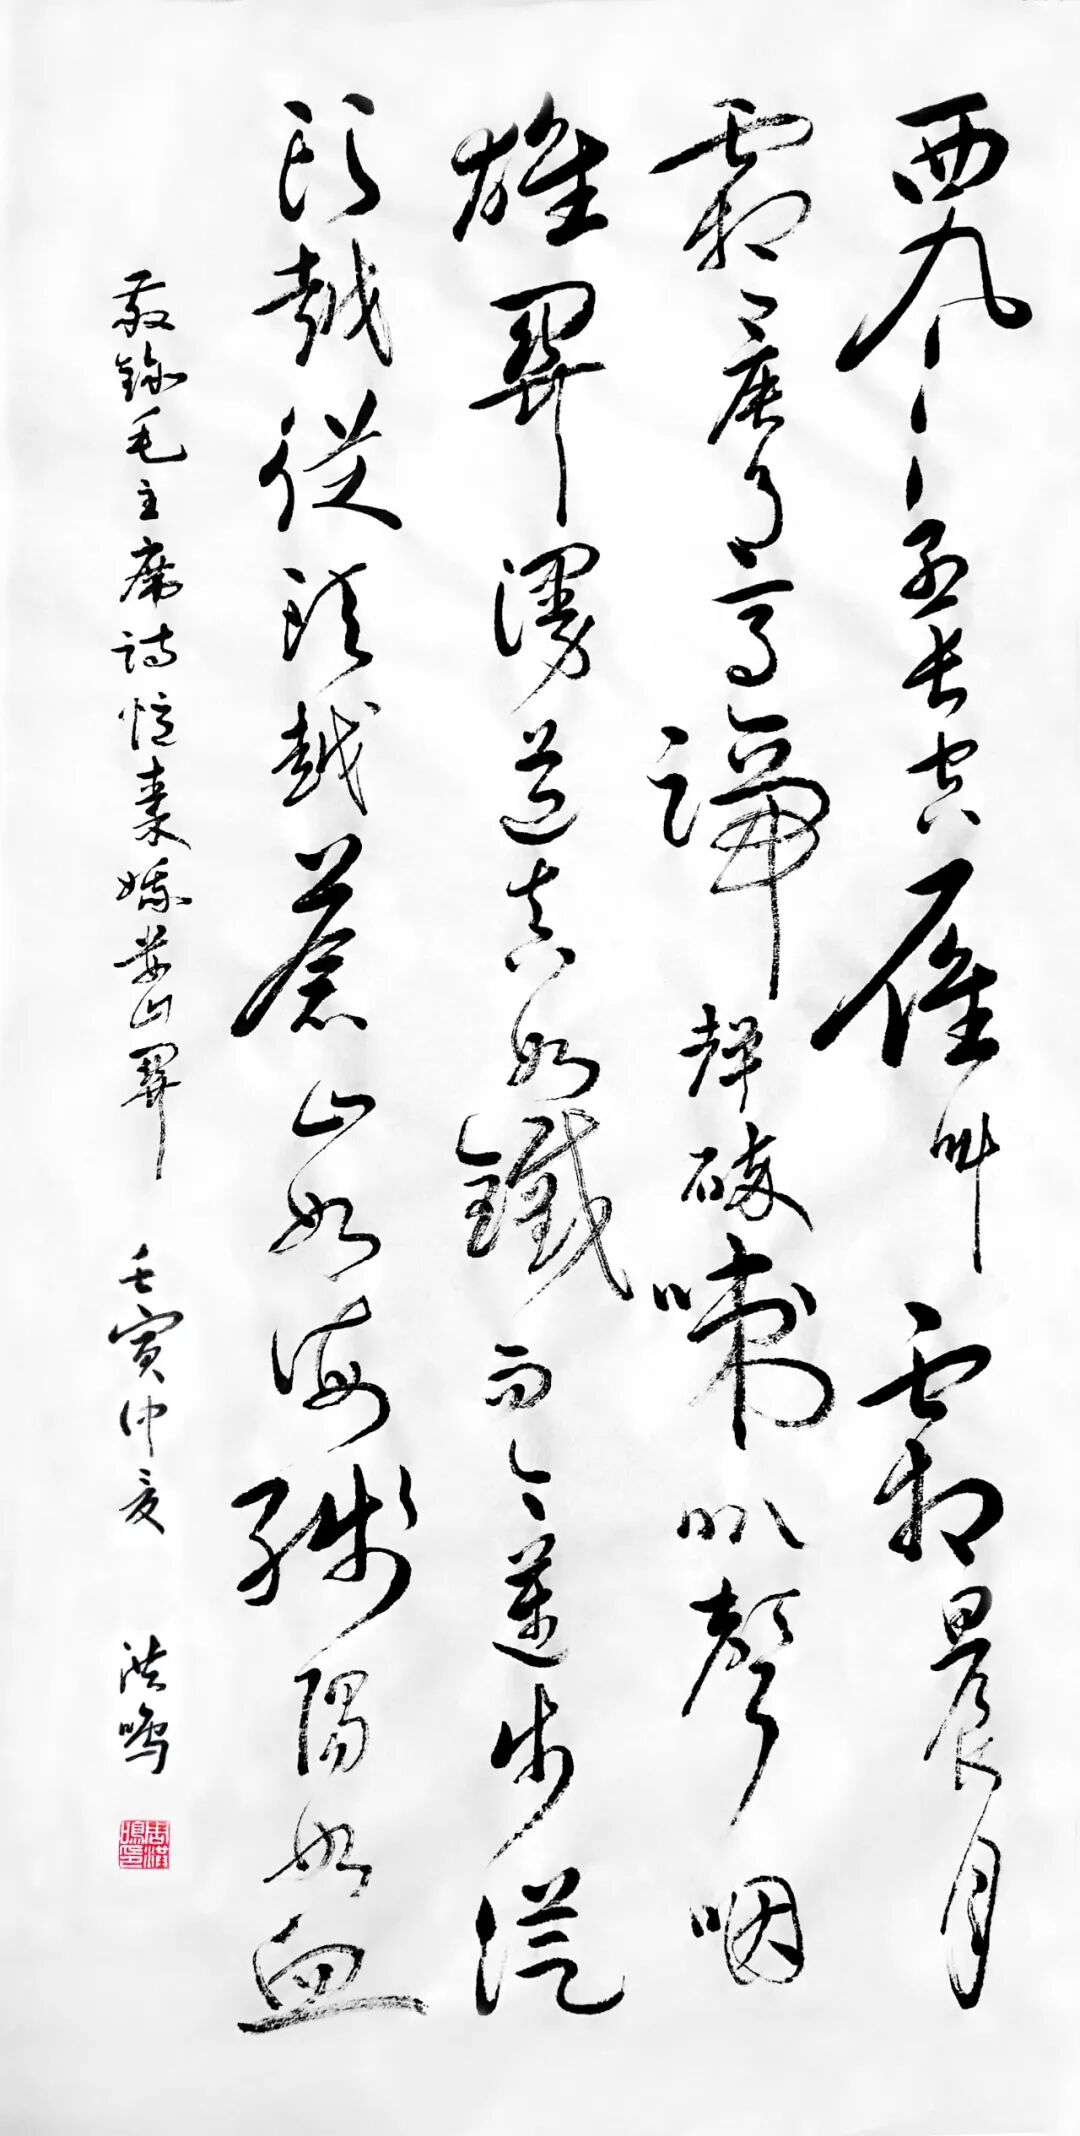 西風烈長空雁叫霜晨月
霜晨月馬蹄聲碎喇叭聲咽
雄關漫道真如鐵而今邁步從
頭越從頭越蒼山如海殘陽如血
敬錄毛主席詩憶秦娥婁山關 壬寅仲夏 洪鳴
周洪鳴印